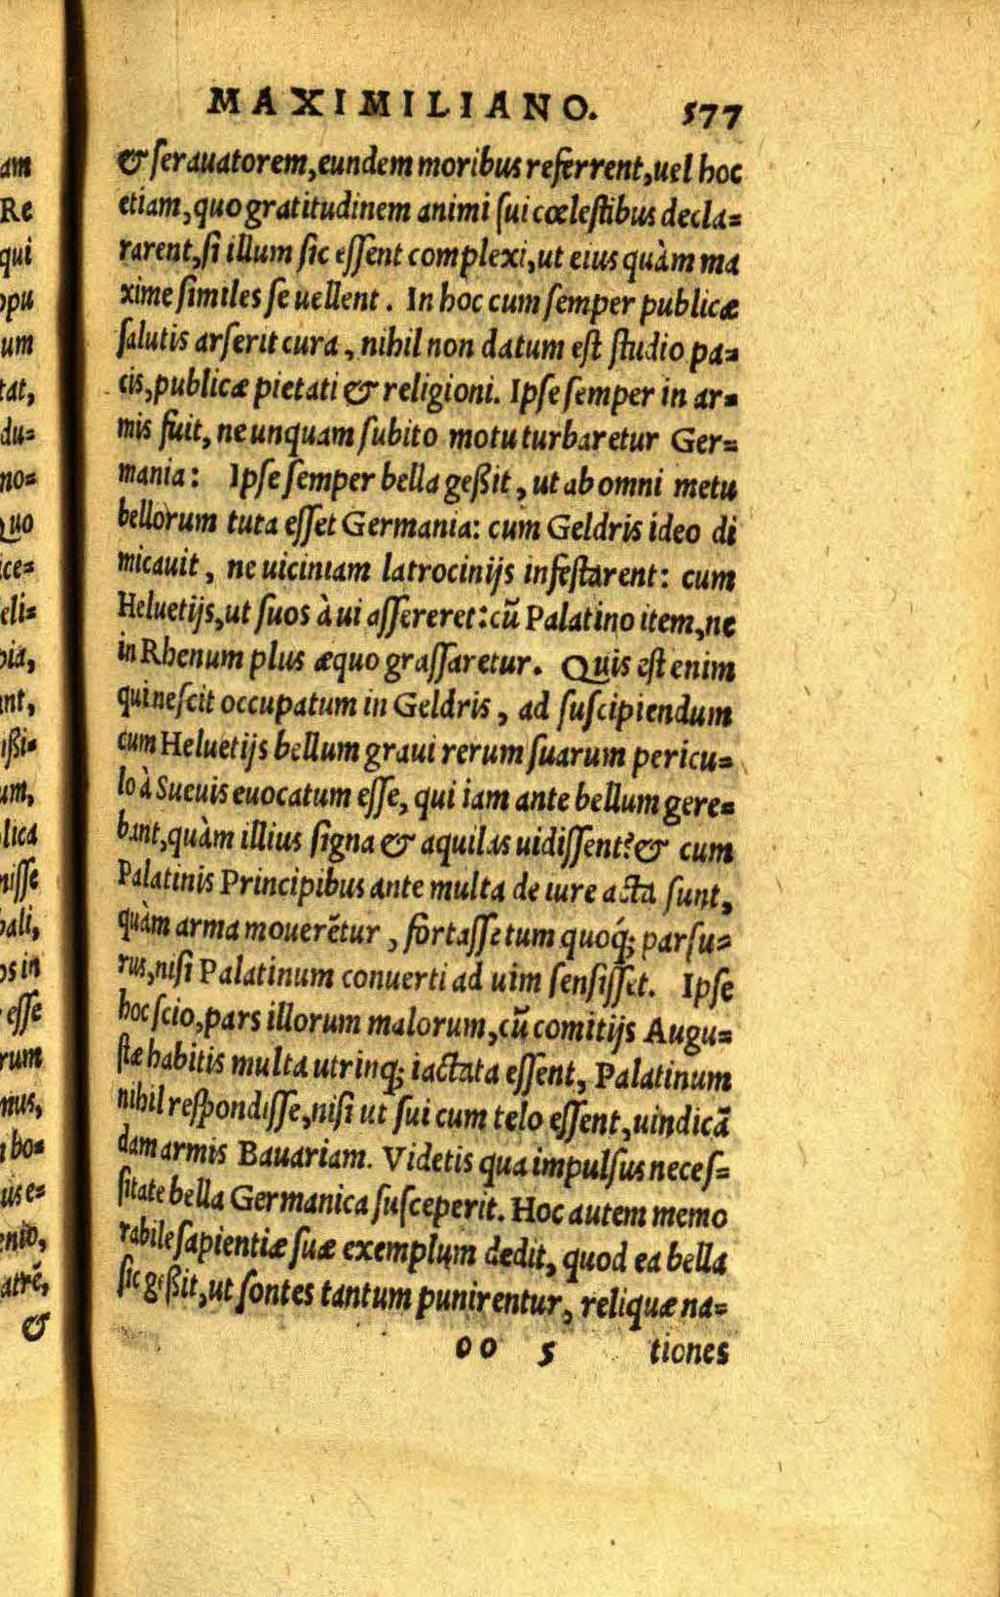 MAXIMILIANO. 577
& ſerauatorem, eundem moribus referrent, uel hoc
etiam, quo gratitudinem animi ſui cœleſtibus decla=
rarent, ſi illum ſic eſſent complexi, ut eius quàm ma
xime ſimiles ſe uellent. In hoc cum ſemper publicæ
ſalutis arſerit cura, nihil non datum eſt ſtudio pa=
cis, publicæ pietati & religioni. Ipſe ſemper in ar=
mis fuit, ne unquam ſubito motu turbaretur Ger=
mania: Ipſe ſemper bella geßit, ut ab omni metu
bellorum tuta eſſet Germania: cum Geldris ideo di
micauit, ne uiciniam latrocinijs infeſtarent: cum
Heluetijs, ut ſuos à ui aſſereret: cũ Palatino item, ne
in Rhenum plus æquo graſſaretur. Quis eſt enim
qui neſcit occupatum in Geldris, ad ſuſcipiendum
cum Heluetijs bellum graui rerum ſuarum pericu=
lo à Sueuis euocatum eſſe, qui iam ante bellum gere=
bant, quàm illius ſigna & aquilas uidiſſent? & cum
Palatinis Principibus ante multa de iure acta ſunt,
quàm arma mouerẽtur, fortaſſe tum quoq́; parſu=
rus, niſi Palatinum conuerti ad uim ſenſiſſet. Ipſe
hoc ſcio, pars illorum malorum, cũ comitijs Augu=
ſtæ habitis multa utrinq; iactata eſſent, Palatinum
nihil reſpondiſſe, niſi ut ſui cum telo eſſent, uindicã
dam armis Bauariam. Videtis qua impulſus neceſ=
ſitate bella Germanica ſuſceperit. Hoc autem memo
rabile ſapientiæ ſuæ exemplum dedit, quod ea bella
ſic geßit, ut ſontes tantum punirentur, reliquæ na=
oo 5 tiones
am
Re
qui
opu
um
tat,
du=
no=
Quo
ce=
eli=
pia,
nt,
ißi=
um,
lica
niſſe
bali,
os in
eſſe
rum
nus,
bo=
us e=
ento,
atrẽ,
&